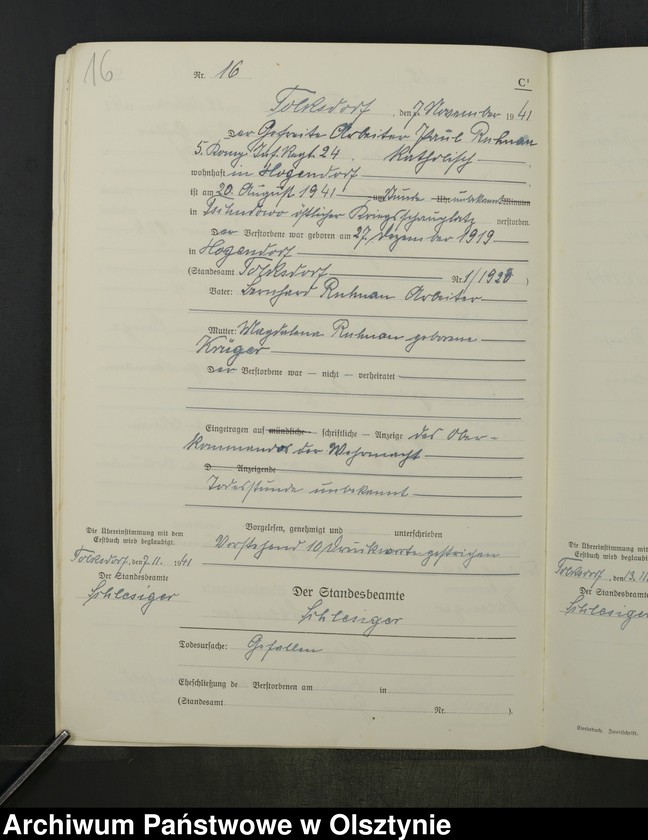 16
Nr. 16
C¹
Tolksdorf, den 7. November 1941
Der Gefreite Arbeiter Paul Ruhnau
5. Komp. Inf. Regt. 24. Katholisch
wohnhaft in Hogendorf
ist am 20. August 1941 um Stunde Uhr unbekannt Minuten
in östlicher Kriegsschauplatz verstorben.
Der Verstorbene war geboren am 27. Dezember 1919
in Hogendorf
(Standesamt Tolksdorf Nr. 1/1920)
Vater: Bernhard Ruhnau Arbeiter
Mutter: Magdalena Ruhnau geborene
Krüger
Der Verstorbene war — nicht — verheiratet
Eingetragen auf mündliche — schriftliche — Anzeige des Ober-
kommandos der Wehrmacht
D. Anzeigende
Todesstunde unbekannt
Vorgelesen, genehmigt und unterschrieben
Vorstehend 10 Druckworte gestrichen
Die Übereinstimmung mit dem
Erstbuch wird beglaubigt.
Tolksdorf, den 7.11. 1941
Der Standesbeamte
Schlesiger
Der Standesbeamte
Schlesiger
Todesursache: Gefallen
Eheschließung de Verstorbenen am in
(Standesamt Nr. ).
Die Übereinstimmung mit
Erstbuch wird beglaubi
Tolksdorf, den 13.11
Der Standesbeamte
Schlesiger
Sterbebuch. Zweitschrift.
Archiwum Państwowe w Olsztynie